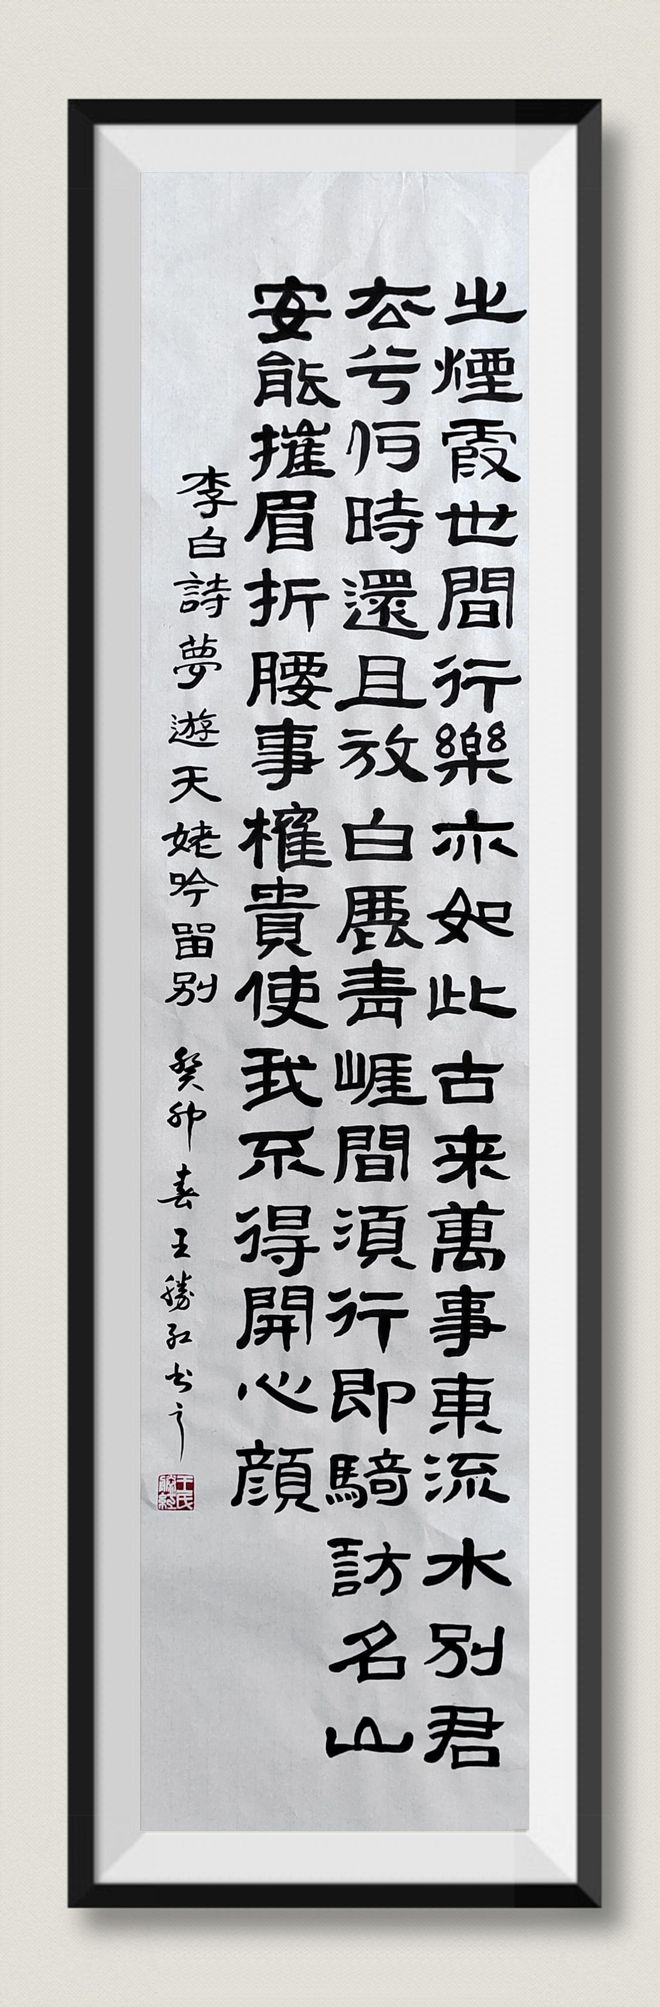 之煙霞世間行樂亦如此古来萬事東流水別君
去兮何時還且放白鹿青崕間須行即騎訪名山
安能摧眉折腰事權貴使我不得開心顔
李白詩夢遊天姥吟留別 癸卯春王勝紅书